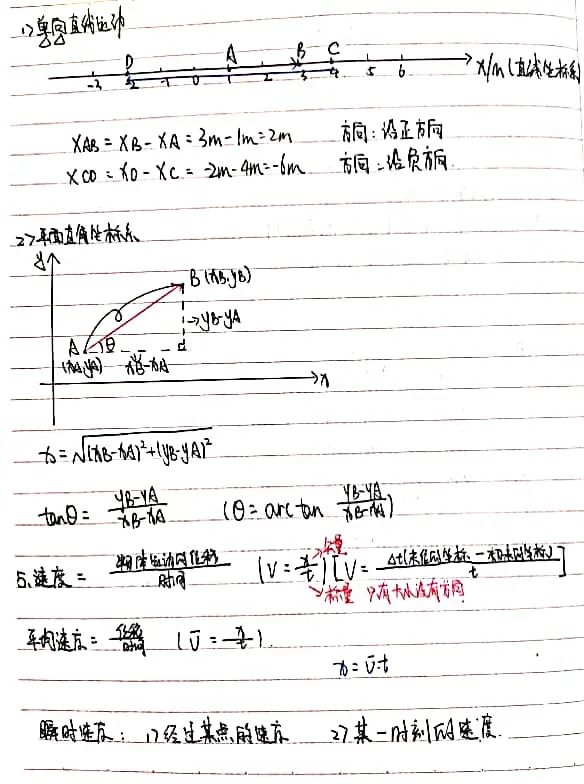 1> 单向直线运动
D A B C
-3 -2 -1 0 1 2 3 4 5 6 x/m (直线坐标系)
xAB = xB - xA = 3m - 1m = 2m 方向:沿正方向
xCD = xD - xC = -2m - 4m = -6m 方向:沿负方向
2> 平面直角坐标系
y
B (xB, yB)
→ yB-yA
A θ
(xA, yA) xB-xA
x
x = √(xB-xA)²+(yB-yA)²
tanθ = yB-yA / xB-xA (θ = arc tan yB-yA / xB-xA)
5. 速度 = 物体运动的位移 / 时间 (V = x/t) [V = Δt(末位的坐标 - 初来的坐标) / t]
→矢量
→标量 只有大小没有方向
平均速度 = 位移 / 时间 (v̄ = x/t)
x = v̄·t
瞬时速度: 1> 经过某点的速度 2> 某一时刻的速度.